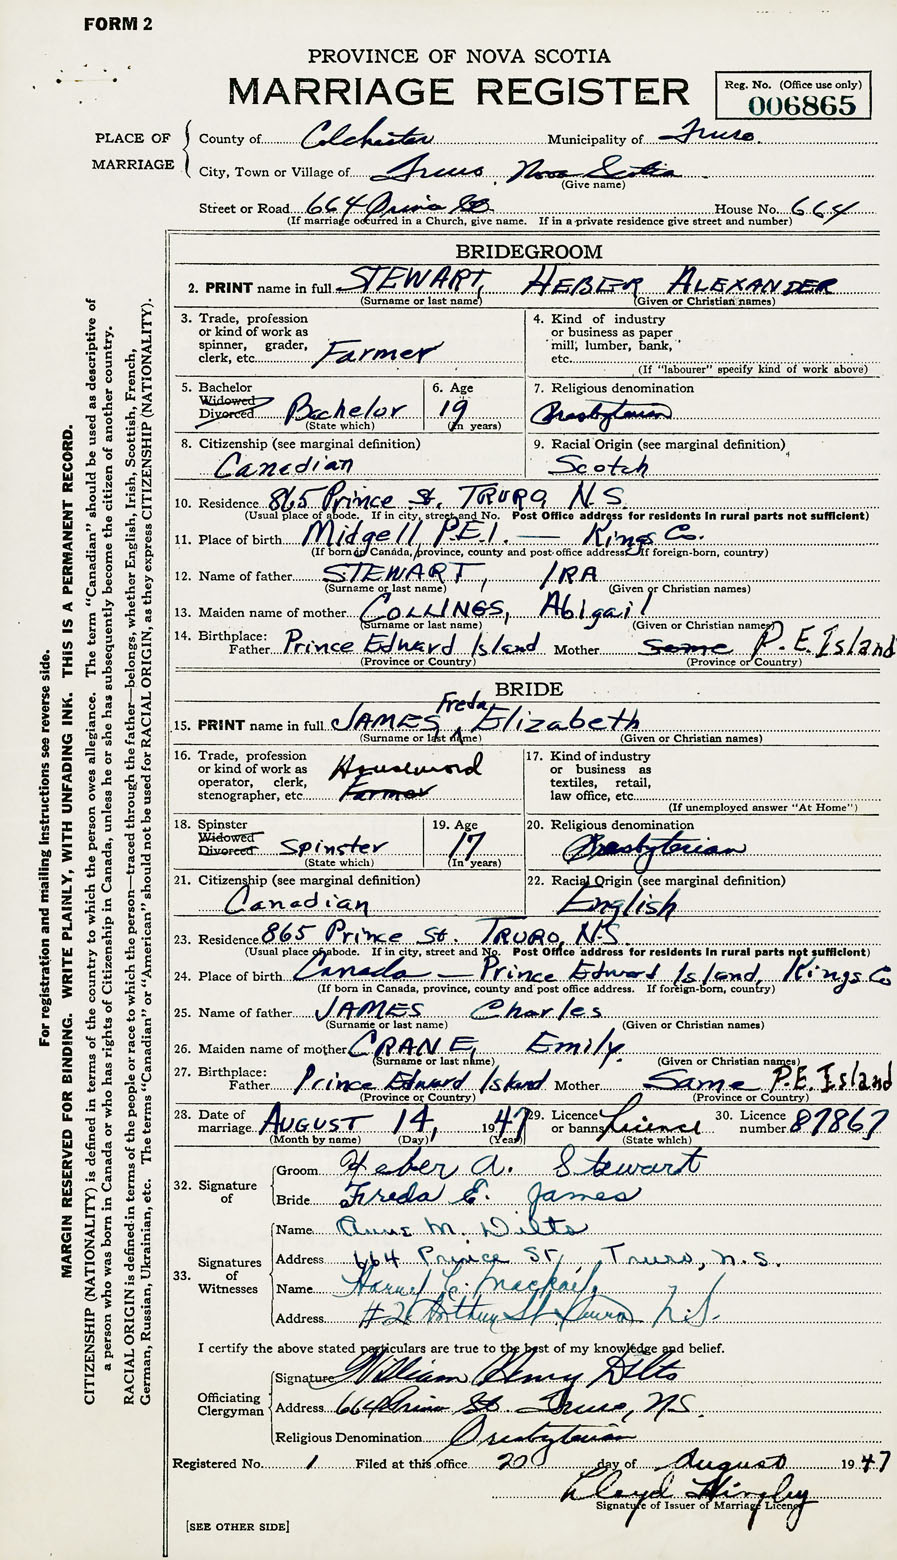 FORM 2
PROVINCE OF NOVA SCOTIA
MARRIAGE REGISTER
Reg. No. (Office use only)
006865
PLACE OF MARRIAGE
County of Colchester Municipality of Truro.
City, Town or Village of Truro, Nova Scotia
(Give name)
Street or Road 664 Prince St. House No. 664
(If marriage occurred in a Church, give name. If in a private residence give street and number)
BRIDEGROOM
2. PRINT name in full STEWART, HEBER ALEXANDER
(Surname or last name) (Given or Christian names)
3. Trade, profession or kind of work as spinner, grader, clerk, etc. Farmer
4. Kind of industry or business as paper mill, lumber, bank, etc.
(If "labourer" specify kind of work above)
5. Bachelor Widowed Divorced Bachelor
(State which)
6. Age 19
(In years)
7. Religious denomination
Presbyterian
8. Citizenship (see marginal definition)
Canadian
9. Racial Origin (see marginal definition)
Scotch
10. Residence 865 Prince St. TRURO, N.S.
(Usual place of abode. If in city, street and No. Post Office address for residents in rural parts not sufficient)
11. Place of birth Midgell, P.E.I. — Kings Co.
(If born in Canada, province, county and post office address. If foreign-born, country)
12. Name of father STEWART, IRA
(Surname or last name) (Given or Christian names)
13. Maiden name of mother COLLINGS, Abigail
(Surname or last name) (Given or Christian names)
14. Birthplace: Father Prince Edward Island Mother Same P.E.Island
(Province or Country) (Province or Country)
BRIDE
Freda
15. PRINT name in full JAMES, Elizabeth
(Surname or last name) (Given or Christian names)
16. Trade, profession or kind of work as operator, clerk, stenographer, etc. Farmer
17. Kind of industry or business as textiles, retail, law office, etc.
(If unemployed answer "At Home")
18. Spinster Widowed Divorced Spinster
(State which)
19. Age 17
(In years)
20. Religious denomination
Presbyterian
21. Citizenship (see marginal definition)
Canadian
22. Racial Origin (see marginal definition)
English
23. Residence 865 Prince St. TRURO, N.S.
(Usual place of abode. If in city, street and No. Post Office address for residents in rural parts not sufficient)
24. Place of birth Canada — Prince Edward Island, Kings Co
(If born in Canada, province, county and post office address. If foreign-born, country)
25. Name of father JAMES Charles
(Surname or last name) (Given or Christian names)
26. Maiden name of mother CRANE, Emily.
(Surname or last name) (Given or Christian names)
27. Birthplace: Father Prince Edward Island Mother Same P.E.Island
(Province or Country) (Province or Country)
28. Date of marriage AUGUST 14, 1947
(Month by name) (Day) (Year)
29. Licence or banns Licence
(State which)
30. Licence number 87867
32. Signature of
Groom Heber A. Stewart
Bride Freda E. James
33. Signatures of Witnesses
Name Anne M. Dilts
Address 664 Prince St, Truro, N.S.
Name Harvey C.
Address Truro N.S.
I certify the above stated particulars are true to the best of my knowledge and belief.
Officiating Clergyman
Signature William Henry Dilts
Address 664 Prince St. Truro, N.S.
Religious Denomination Presbyterian
Registered No. 1 Filed at this office 20 day of August 1947
Lloyd
Signature of Issuer of Marriage Licence
[SEE OTHER SIDE]
For registration and mailing instructions see reverse side.
MARGIN RESERVED FOR BINDING. WRITE PLAINLY, WITH UNFADING INK. THIS IS A PERMANENT RECORD.
CITIZENSHIP (NATIONALITY) is defined in terms of the country to which the person owes allegiance. The term "Canadian" should be used as descriptive of
a person who was born in Canada or who has rights of Citizenship in Canada, unless he or she has subsequently become the citizen of another country.
RACIAL ORIGIN is defined in terms of the people or race to which the person—traced through the father—belongs, whether English, Irish, Scottish, French,
German, Russian, Ukrainian, etc. The terms "Canadian" or "American" should not be used for RACIAL ORIGIN, as they express CITIZENSHIP (NATIONALITY).